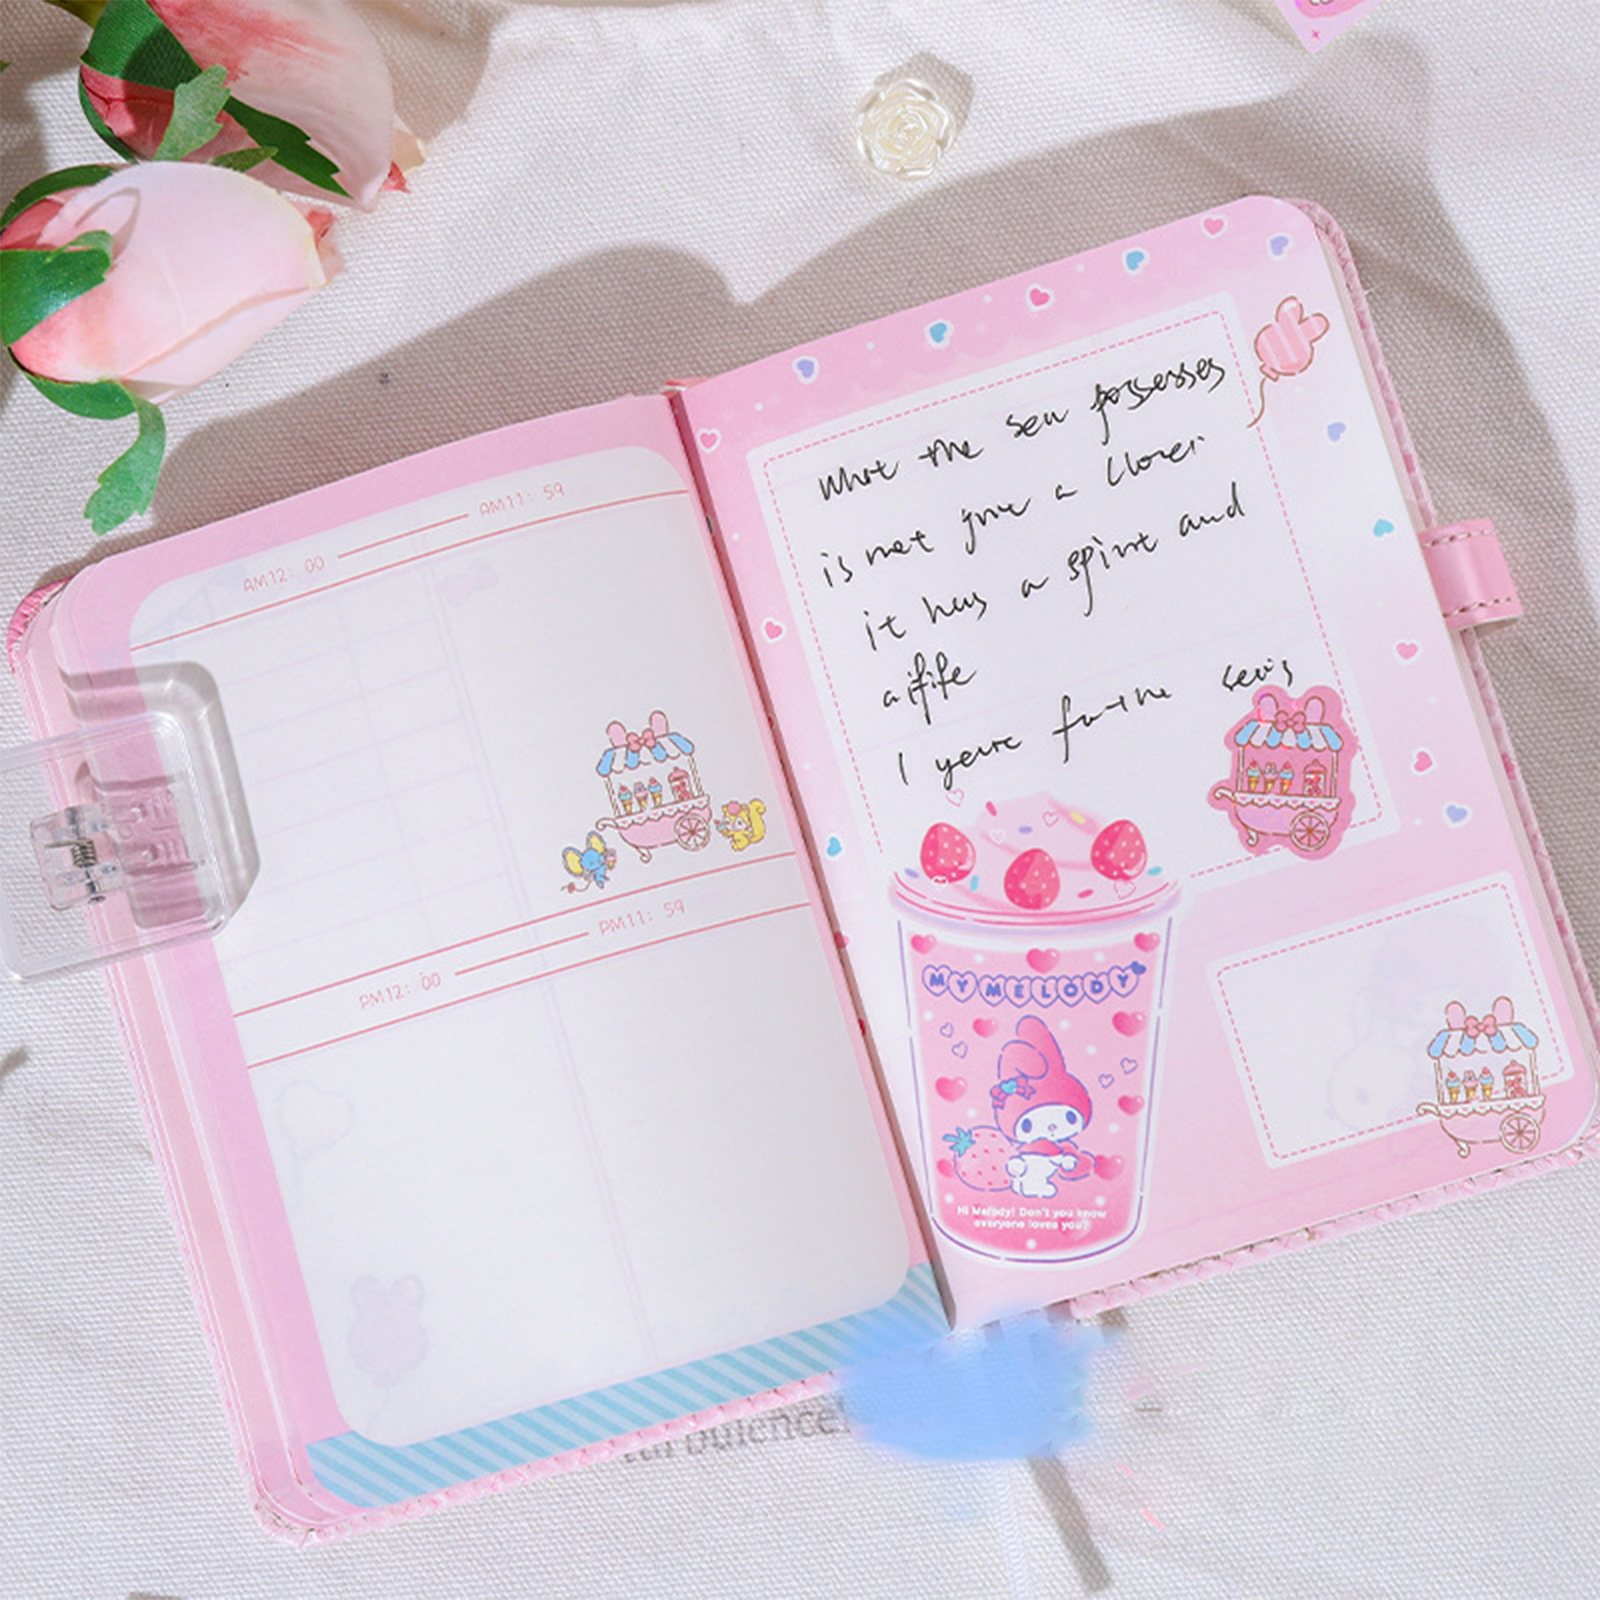 AM12: 00 AM11: 59
PM12: 00 PM11: 59
What the sea possesses
is not just a clover
it has a spirit and
a life
I yearn for the sea's
MY MELODY
Hi Melody! Don't you know
everyone loves you?
turbulence